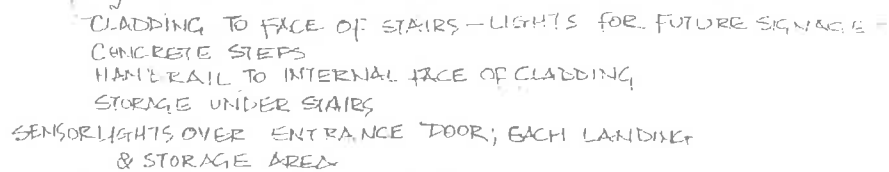 CLADDING TO FACE OF STAIRS - LIGHTS FOR FUTURE SIGNAGE
CONCRETE STEPS
HANDRAIL TO INTERNAL FACE OF CLADDING
STORAGE UNDER STAIRS
SENSORLIGHTS OVER ENTRANCE DOOR; EACH LANDING
& STORAGE AREA